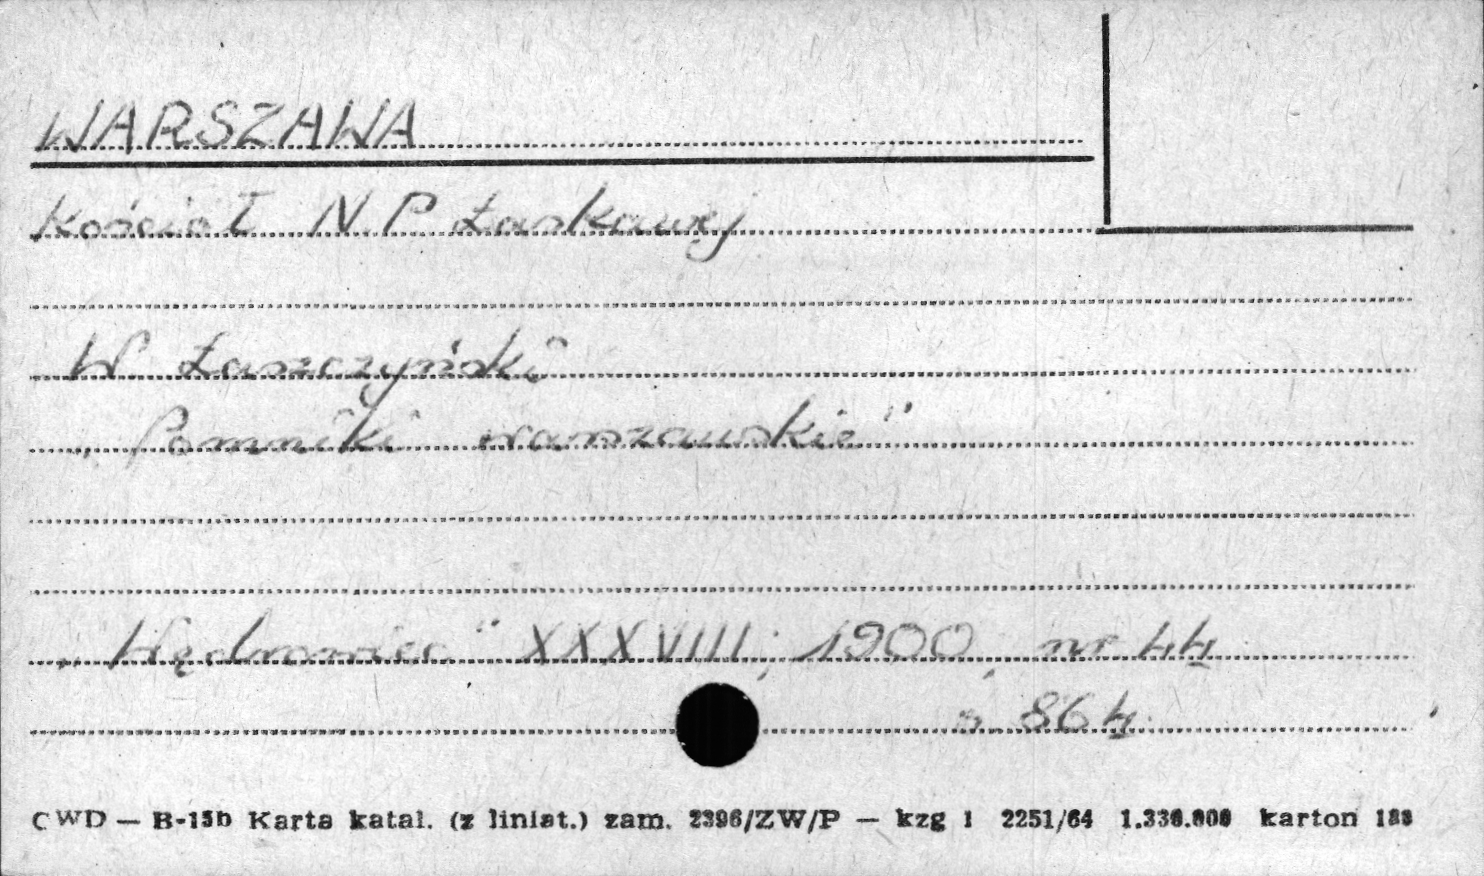 WARSZAWA
Kościoł N.P Łaskawej
W Łaszczyński
„Pomniki warszawskie"
„Wędrowiec" XXXVIII; 1900, nr 44
s. 864.
CWD — B-15b Karta katal. (z liniat.) zam. 2396/ZW/P — kzg 1 2251/64 1.330.000 karton 188